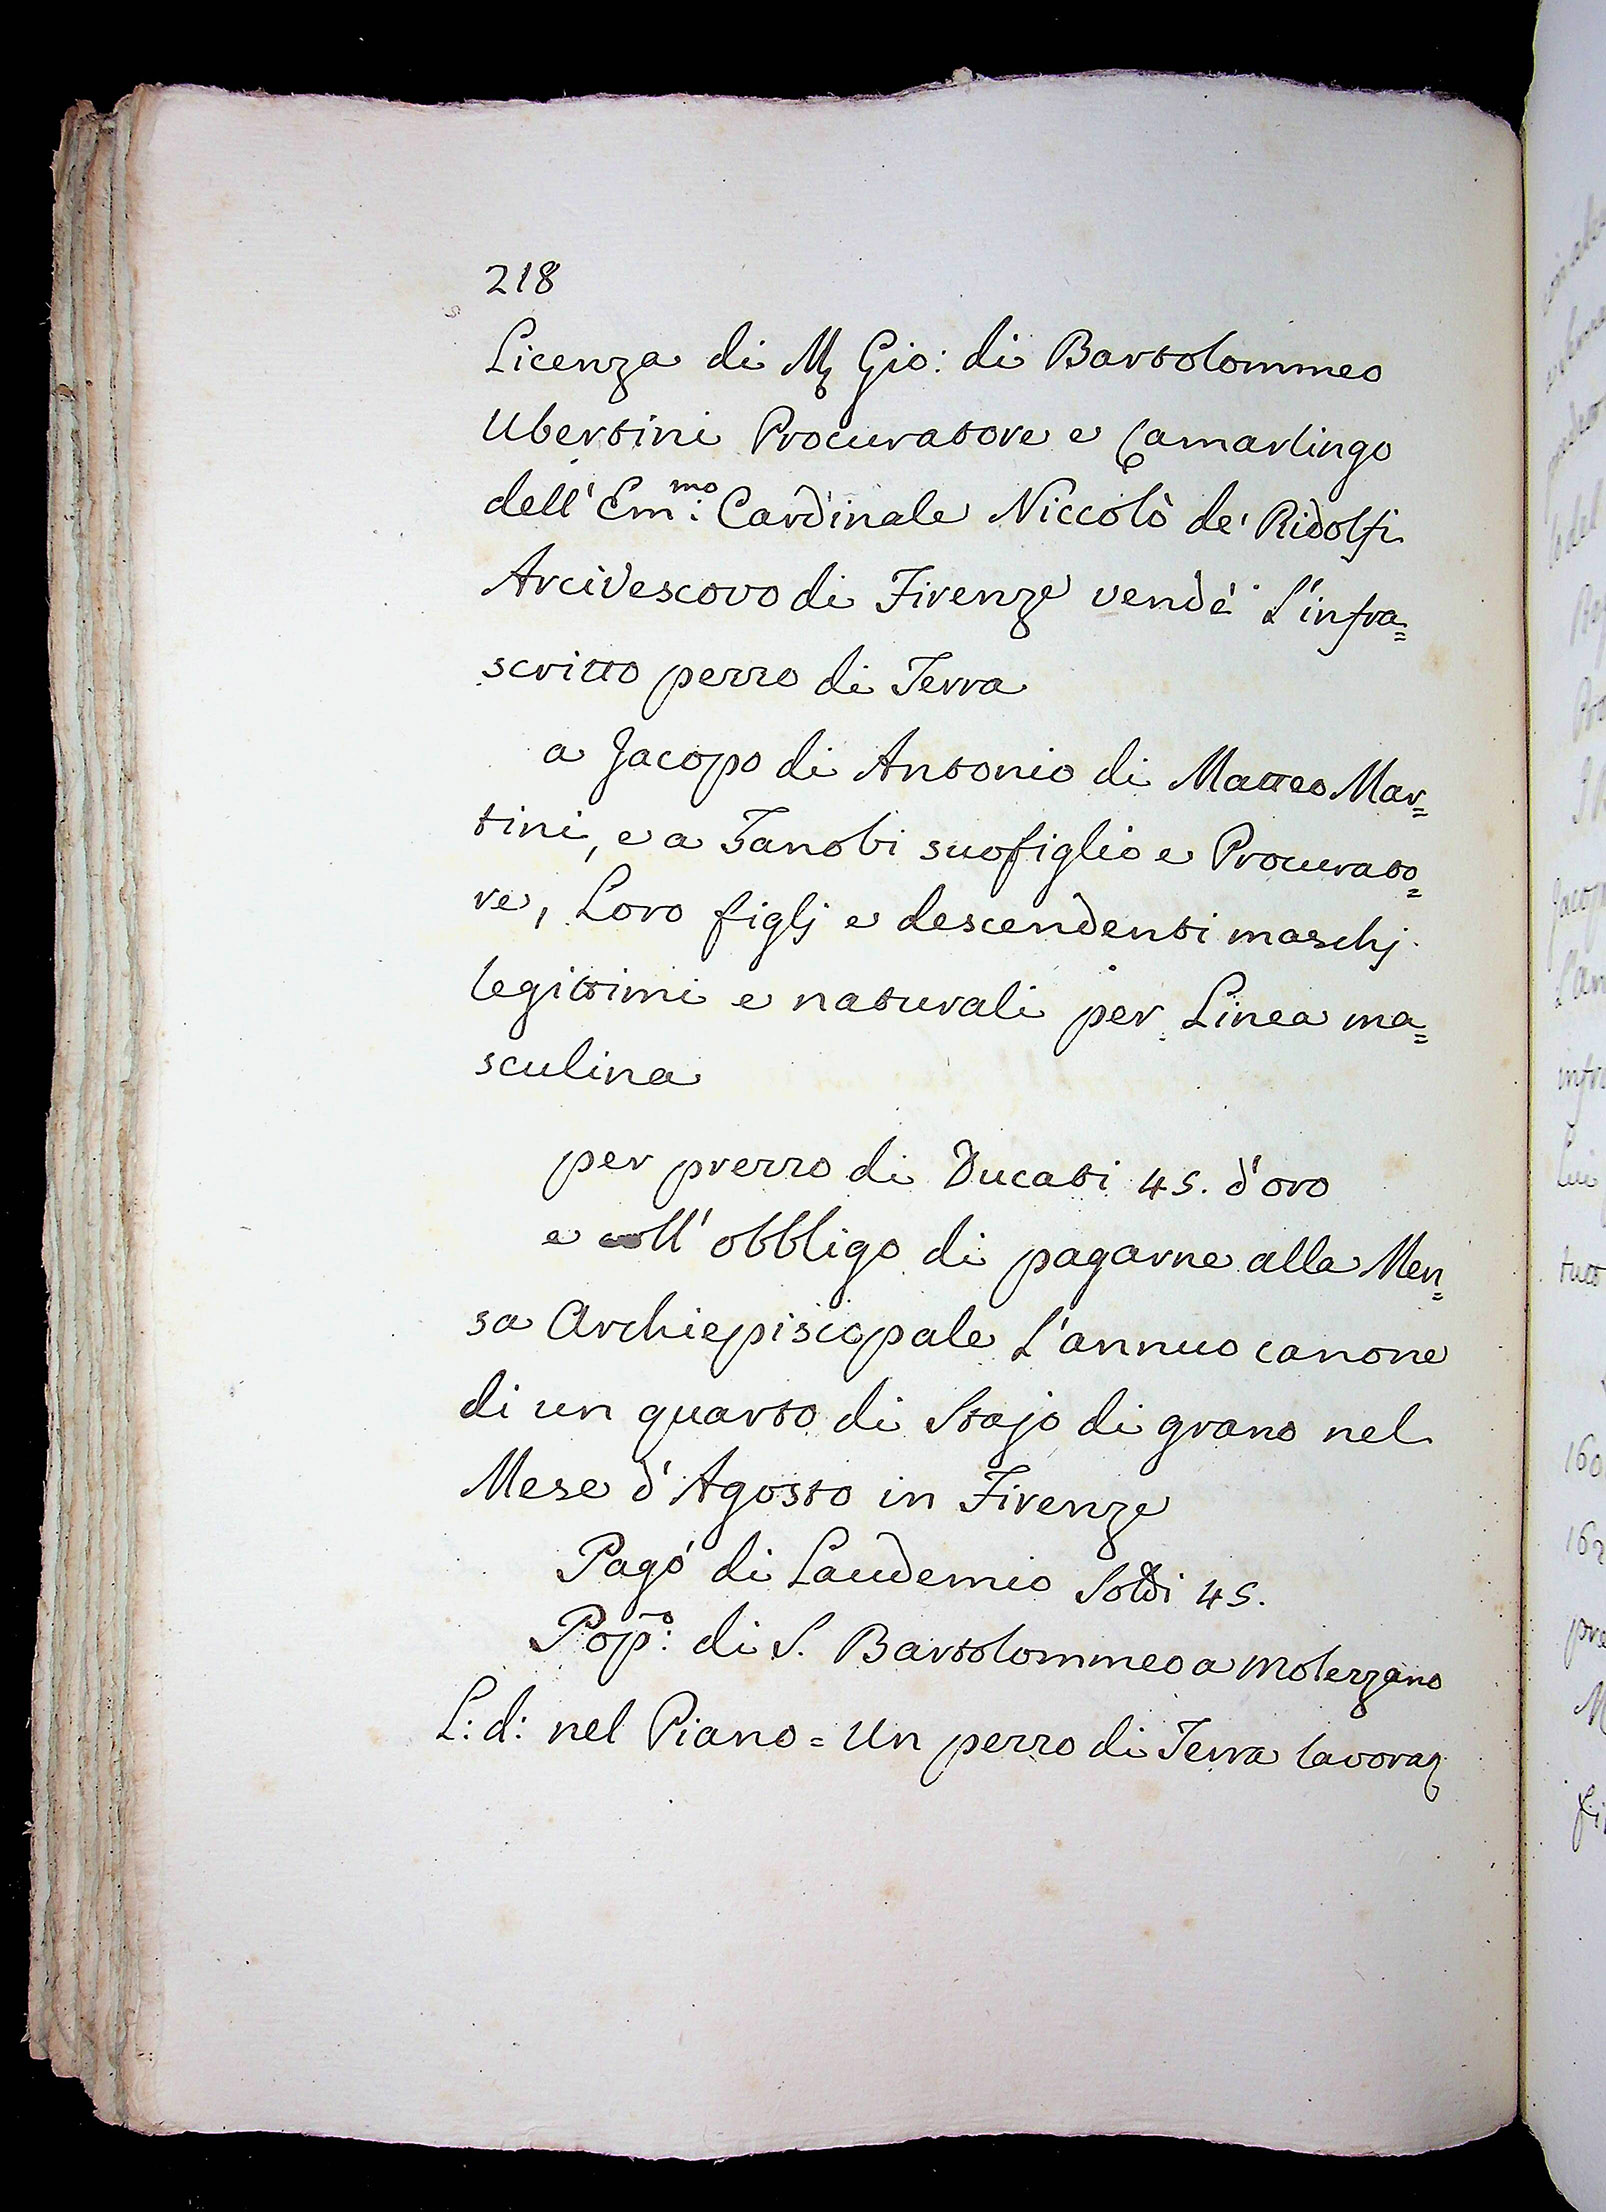 218
Licenza di M. Gio: di Bartolommeo
Ubertini Procuratore e Camarlingo
dell' Em.mo Cardinale Niccolò de' Ridolfi
Arcivescovo di Firenze vendè l'infra=
scritto pezzo di Terra
a Jacopo di Antonio di Matteo Mar=
tini, e a Zanobi suo figlio e Procurato=
re, Loro figlj e descendenti maschj
legittimi e naturali per Linea ma=
sculina
per prezzo di Ducati 45. d'oro
e coll' obbligo di pagarne alla Men=
sa Archiepiscopale l'annuo canone
di un quarto di Stajo di grano nel
Mese d'Agosto in Firenze
Pagò di Laudemio Soldi 45.
Pop.o: di S. Bartolommeo a Molezzano
L: d: nel Piano = Un pezzo di Terra lavora